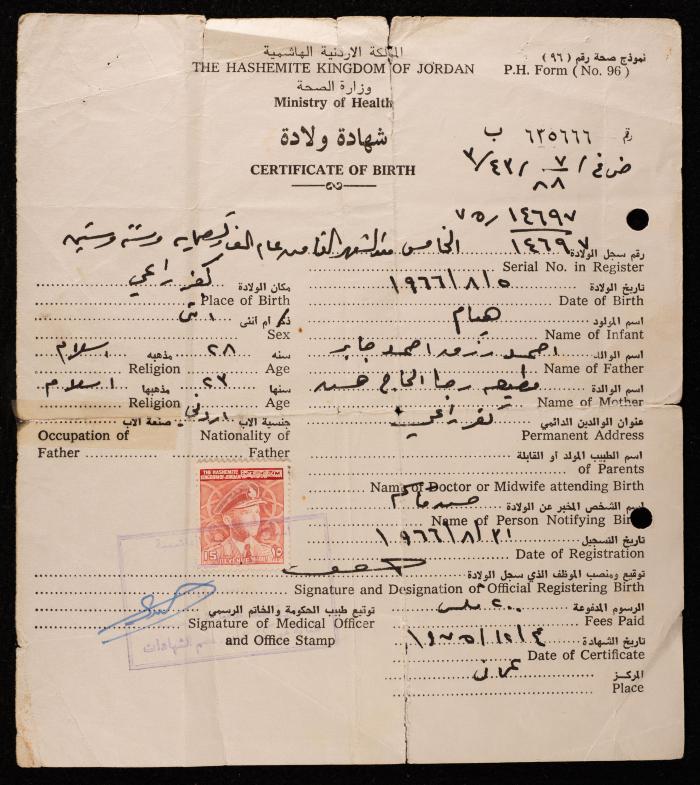 المملكة الاردنية الهاشمية
نموذج صحة رقم (٩٦)
THE HASHEMITE KINGDOM OF JORDAN
P.H. Form (No. 96)
وزارة الصحة
Ministry of Health
شهادة ولادة
رقم ٦٣٥٦٦٦ ب
CERTIFICATE OF BIRTH
٧٥/١٤٦٩٧
رقم سجل الولادة ١٤٦٩٧
Serial No. in Register
الخامس من الشهر الثامن عام الف وتسعمايه وستة وستين
تاريخ الولادة ١٩٦٦/٨/٥
Date of Birth
مكان الولادة كفر راعي
Place of Birth
اسم المولود هيام
Name of Infant
ذكر ام أنثى انثى
Sex
اسم الوالد احمد رزق احمد جابر
Name of Father
سنه ٢٨ مذهبه اسلام
Age Religion
اسم الوالدة رجا الحاج حسين
Name of Mother
سنها ٢٣ مذهبها اسلام
Age Religion
عنوان الوالدين الدائمي كفر راعي
Permanent Address
جنسية الاب اردني صنعة الاب
Nationality of Father
Occupation of Father
اسم الطبيب المولد أو القابلة
of Parents
Name of Doctor or Midwife attending Birth
اسم الشخص المخبر عن الولادة
Name of Person Notifying Birth
THE HASHEMITE
KINGDOM OF JORDAN
15 ١٥
تاريخ التسجيل ١٩٦٦/٨/٢١
Date of Registration
توقيع ومنصب الموظف الذي سجل الولادة
Signature and Designation of Official Registering Birth
الرسوم المدفوعة ٢٠٠ فلس
Fees Paid
توقيع طبيب الحكومة والخاتم الرسمي
Signature of Medical Officer
and Office Stamp
تاريخ الشهادة ١٩٧٥/١٢/٤
Date of Certificate
المركز عمان
Place